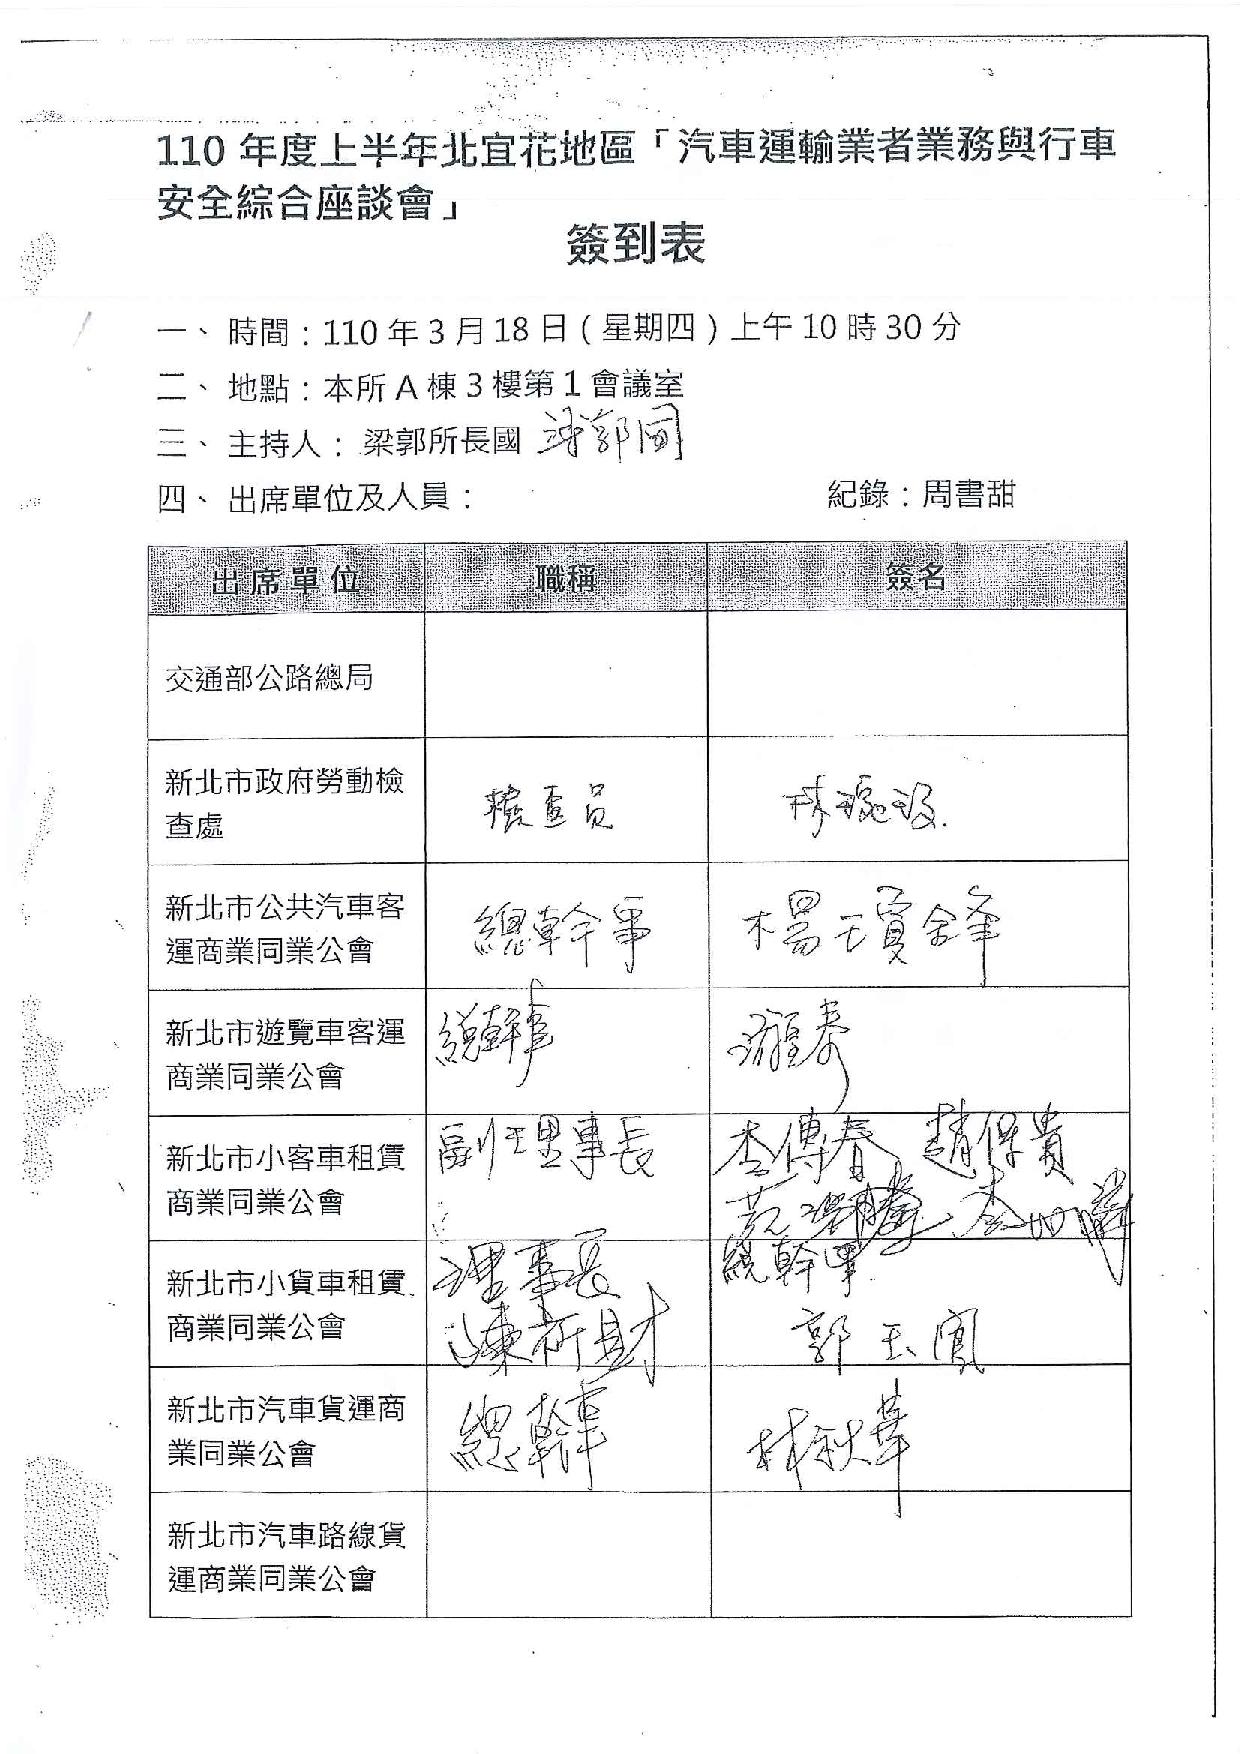 110 年度上半年北宜花地區「汽車運輸業者業務與行車
安全綜合座談會」
簽到表
一、 時間：110 年 3 月 18 日（星期四）上午 10 時 30 分
二、 地點：本所 A 棟 3 樓第 1 會議室
三、 主持人： 梁郭所長國 梁郭國
四、 出席單位及人員： 紀錄：周書甜
出席單位 職稱 簽名
交通部公路總局
新北市政府勞動檢
查處
檢查員
新北市公共汽車客
運商業同業公會
總幹事 楊
新北市遊覽車客運
商業同業公會
總幹事
新北市小客車租賃
商業同業公會
副理事長 李傳春 趙保貴
新北市小貨車租賃
商業同業公會
理事長 總幹事
郭玉鳳
新北市汽車貨運商
業同業公會
總幹事 林秋華
新北市汽車路線貨
運商業同業公會